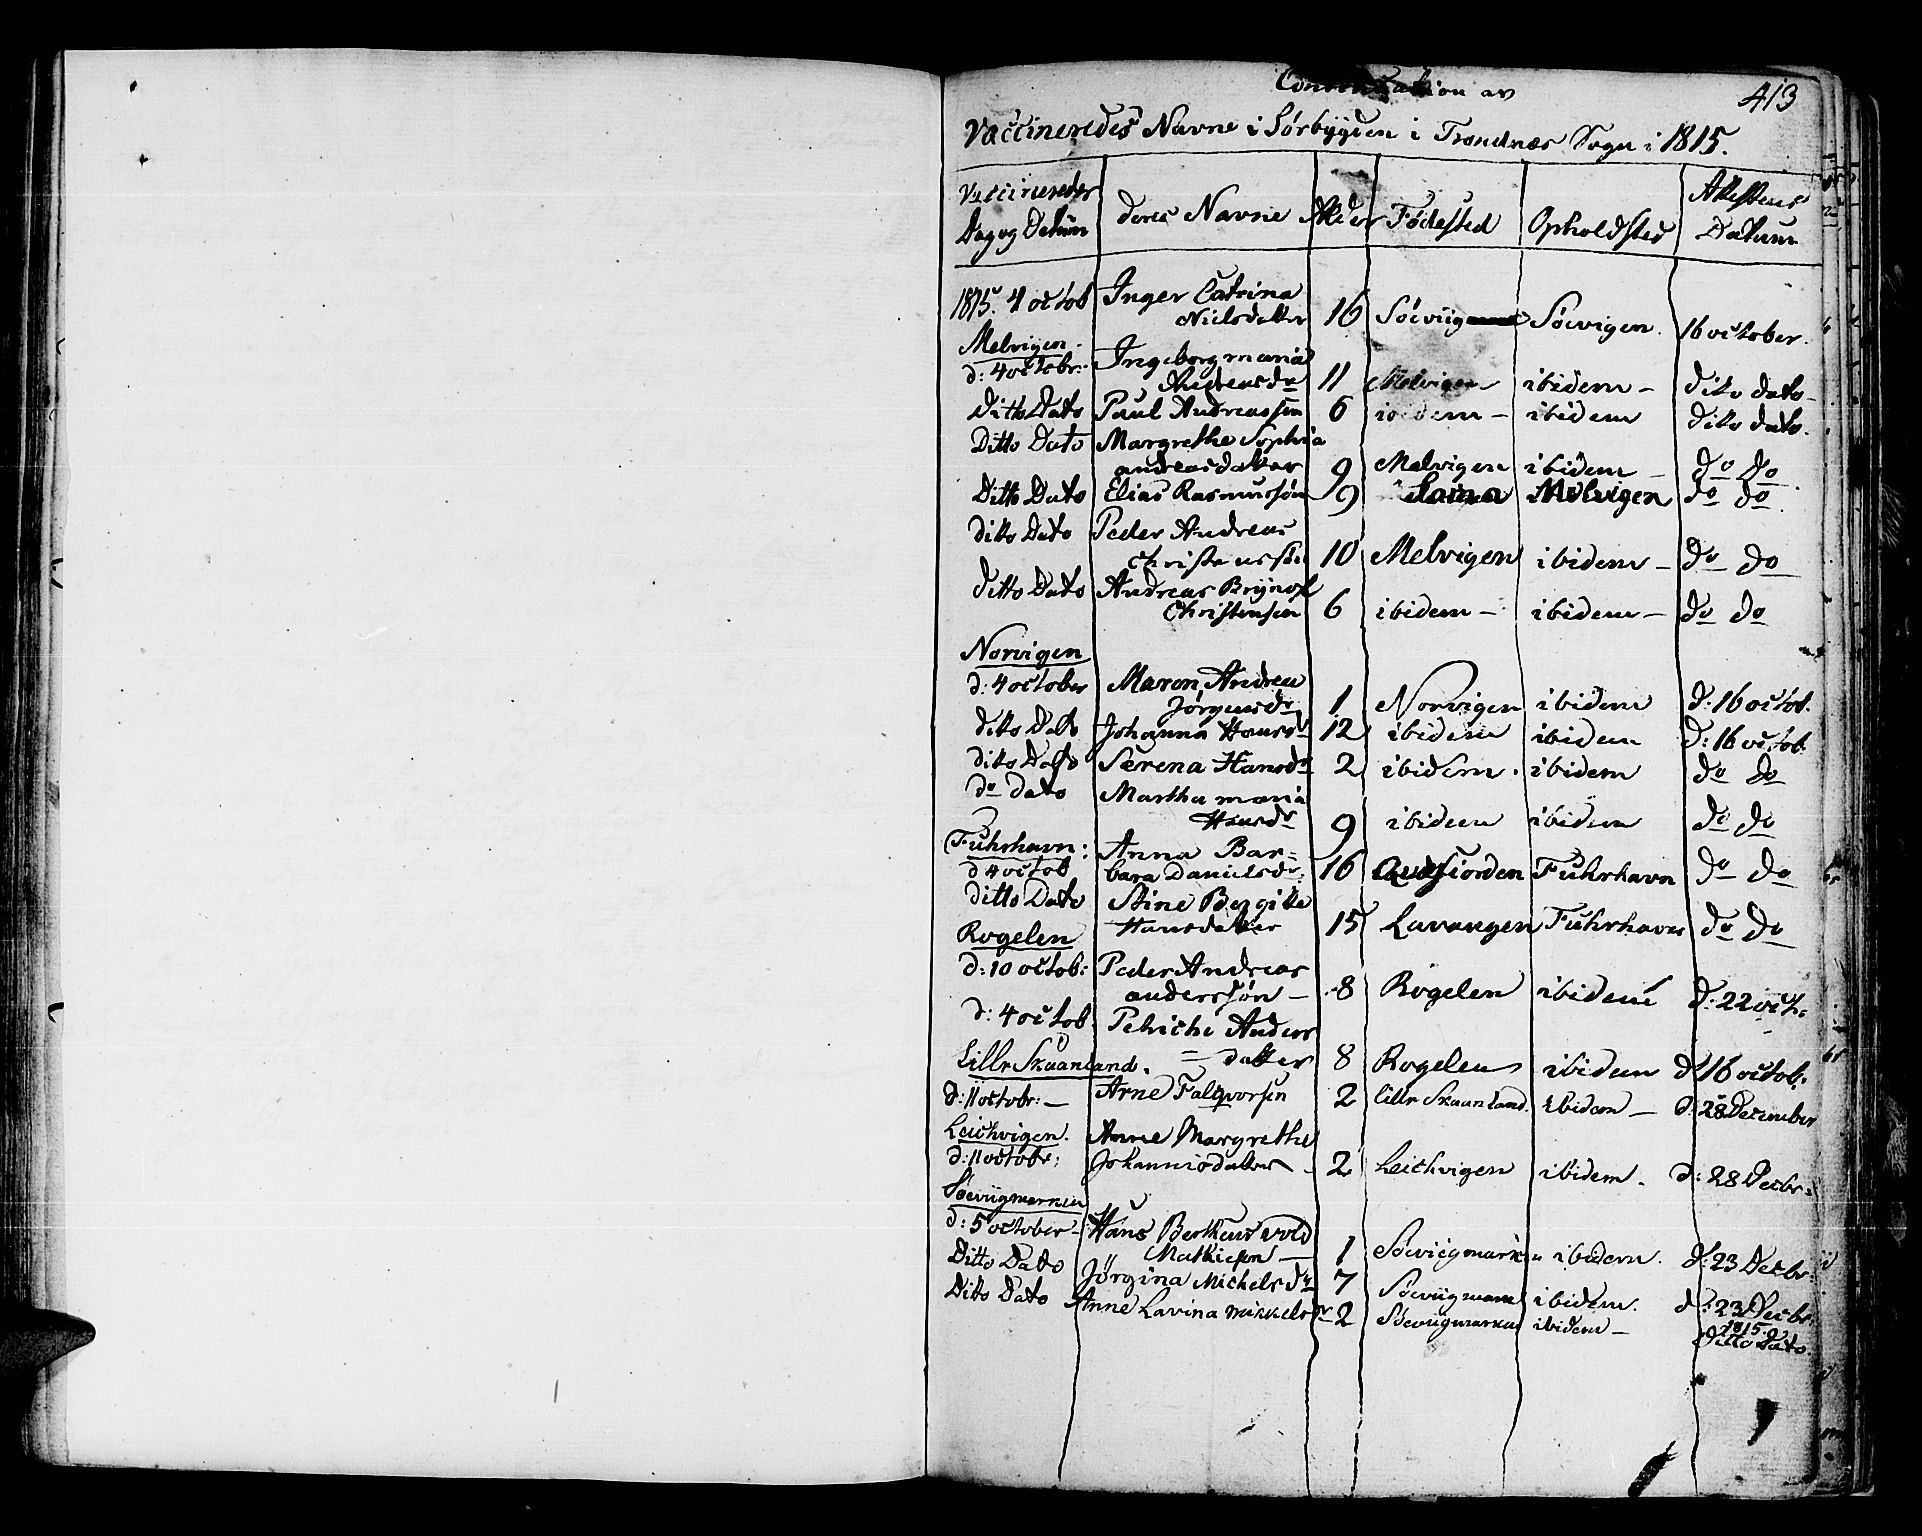 413
Vaccineredes Navne i Sørbygden i Trondnæs Sogn i 1815.
Vaccineredes Dag og Datum | deres Navne | Alder | Fødested | Opholdsted | Attestens Datum
1815. 4 octob | Inger Catrina
Nielsdatter | 16 | Søeviig | Søevigen. | 16 october.
Melvigen
d: 4 octobr: | Ingeborg maria
Andreasdr | 11 | Melvigen | ibidem | dito dato
Ditto Dato | Paul Andreassen | 6 | ibidem | ibidem | dito dato.
Ditto Dato | Margrethe Sophia
andreasdatter | 9 | Melvigen | ibidem | do do
Ditto Dato | Elias Rasmussøn | 9 | | Melvigen | do do
dito Dato | Peder Andreas
Christenssøn | 10 | Melvigen | ibidem | do do
Ditto Dato | Andreas Brÿnolf
Christensen | 6 | ibidem | ibidem | do do
Norvigen
d: 4 october | Maren Andrea
Jørgensdr | 1 | Norvigen | ibidem | d: 16 octob.
dito Dato | Johanna Hansdr | 12 | ibidem | ibidem | d: 16 octob:
dito Dato | Serena Hansdr | 2 | ibidem. | ibidem | do do
do dato | Martha maria
Hansdr | 9 | ibidem | ibidem | do do
Fuhrhavn:
d 4 octob | Anna Bar=
bara Danielsdr: | 16 | Qvæfiorden | Fuhrhavn | do do
ditto Dato | Stine Bergitte
Hansdatter | 15 | Lavangen | Fuhrhavn | do do
Rogelen
d: 10 octob: | Peder Andreas
anderssøn | 8 | Rogelen | ibidem | d: 22 oct:
d: 4 octob. | Petriche Anders
= datter | 8 | Rogelen | ibidem | d 16 octob:
Lille Skaanland.
d: 11 octobr: | Arne Falqvorsen | 2 | Lille Skaanland. | ibidem | d: 28 December
Leichvigen.
d: 11 octobr: | Anne Margrethe
Johannisdatter | 2 | Leichvigen | ibidem. | d: 28 Decbr:
Søeviigmarken
d: 5 october | Hans Bertheus vold
Mathieson | 1 | Søeviigmarken | ibidem. | d: 23 Decbr:
Ditto Dato | Jørgina Michelsdr | 7 | Søeviigmark | ibidem. | d: 23 Decbr
1815.
Dito Dato | Anne Lavina Mikkelsdr | 2 | Søeviigmarken | ibidem | ditto Dato.